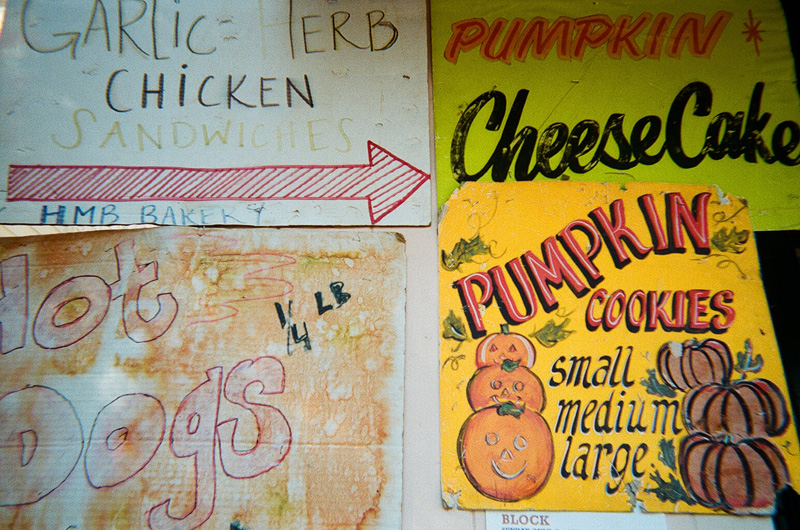 GARLIC- HERB
CHICKEN
SANDWICHES
HMB BAKERY
PUMPKIN
CheeseCake
Hot
1/4 LB
Dogs
PUMPKIN
COOKIES
small
medium
large
BLOCK